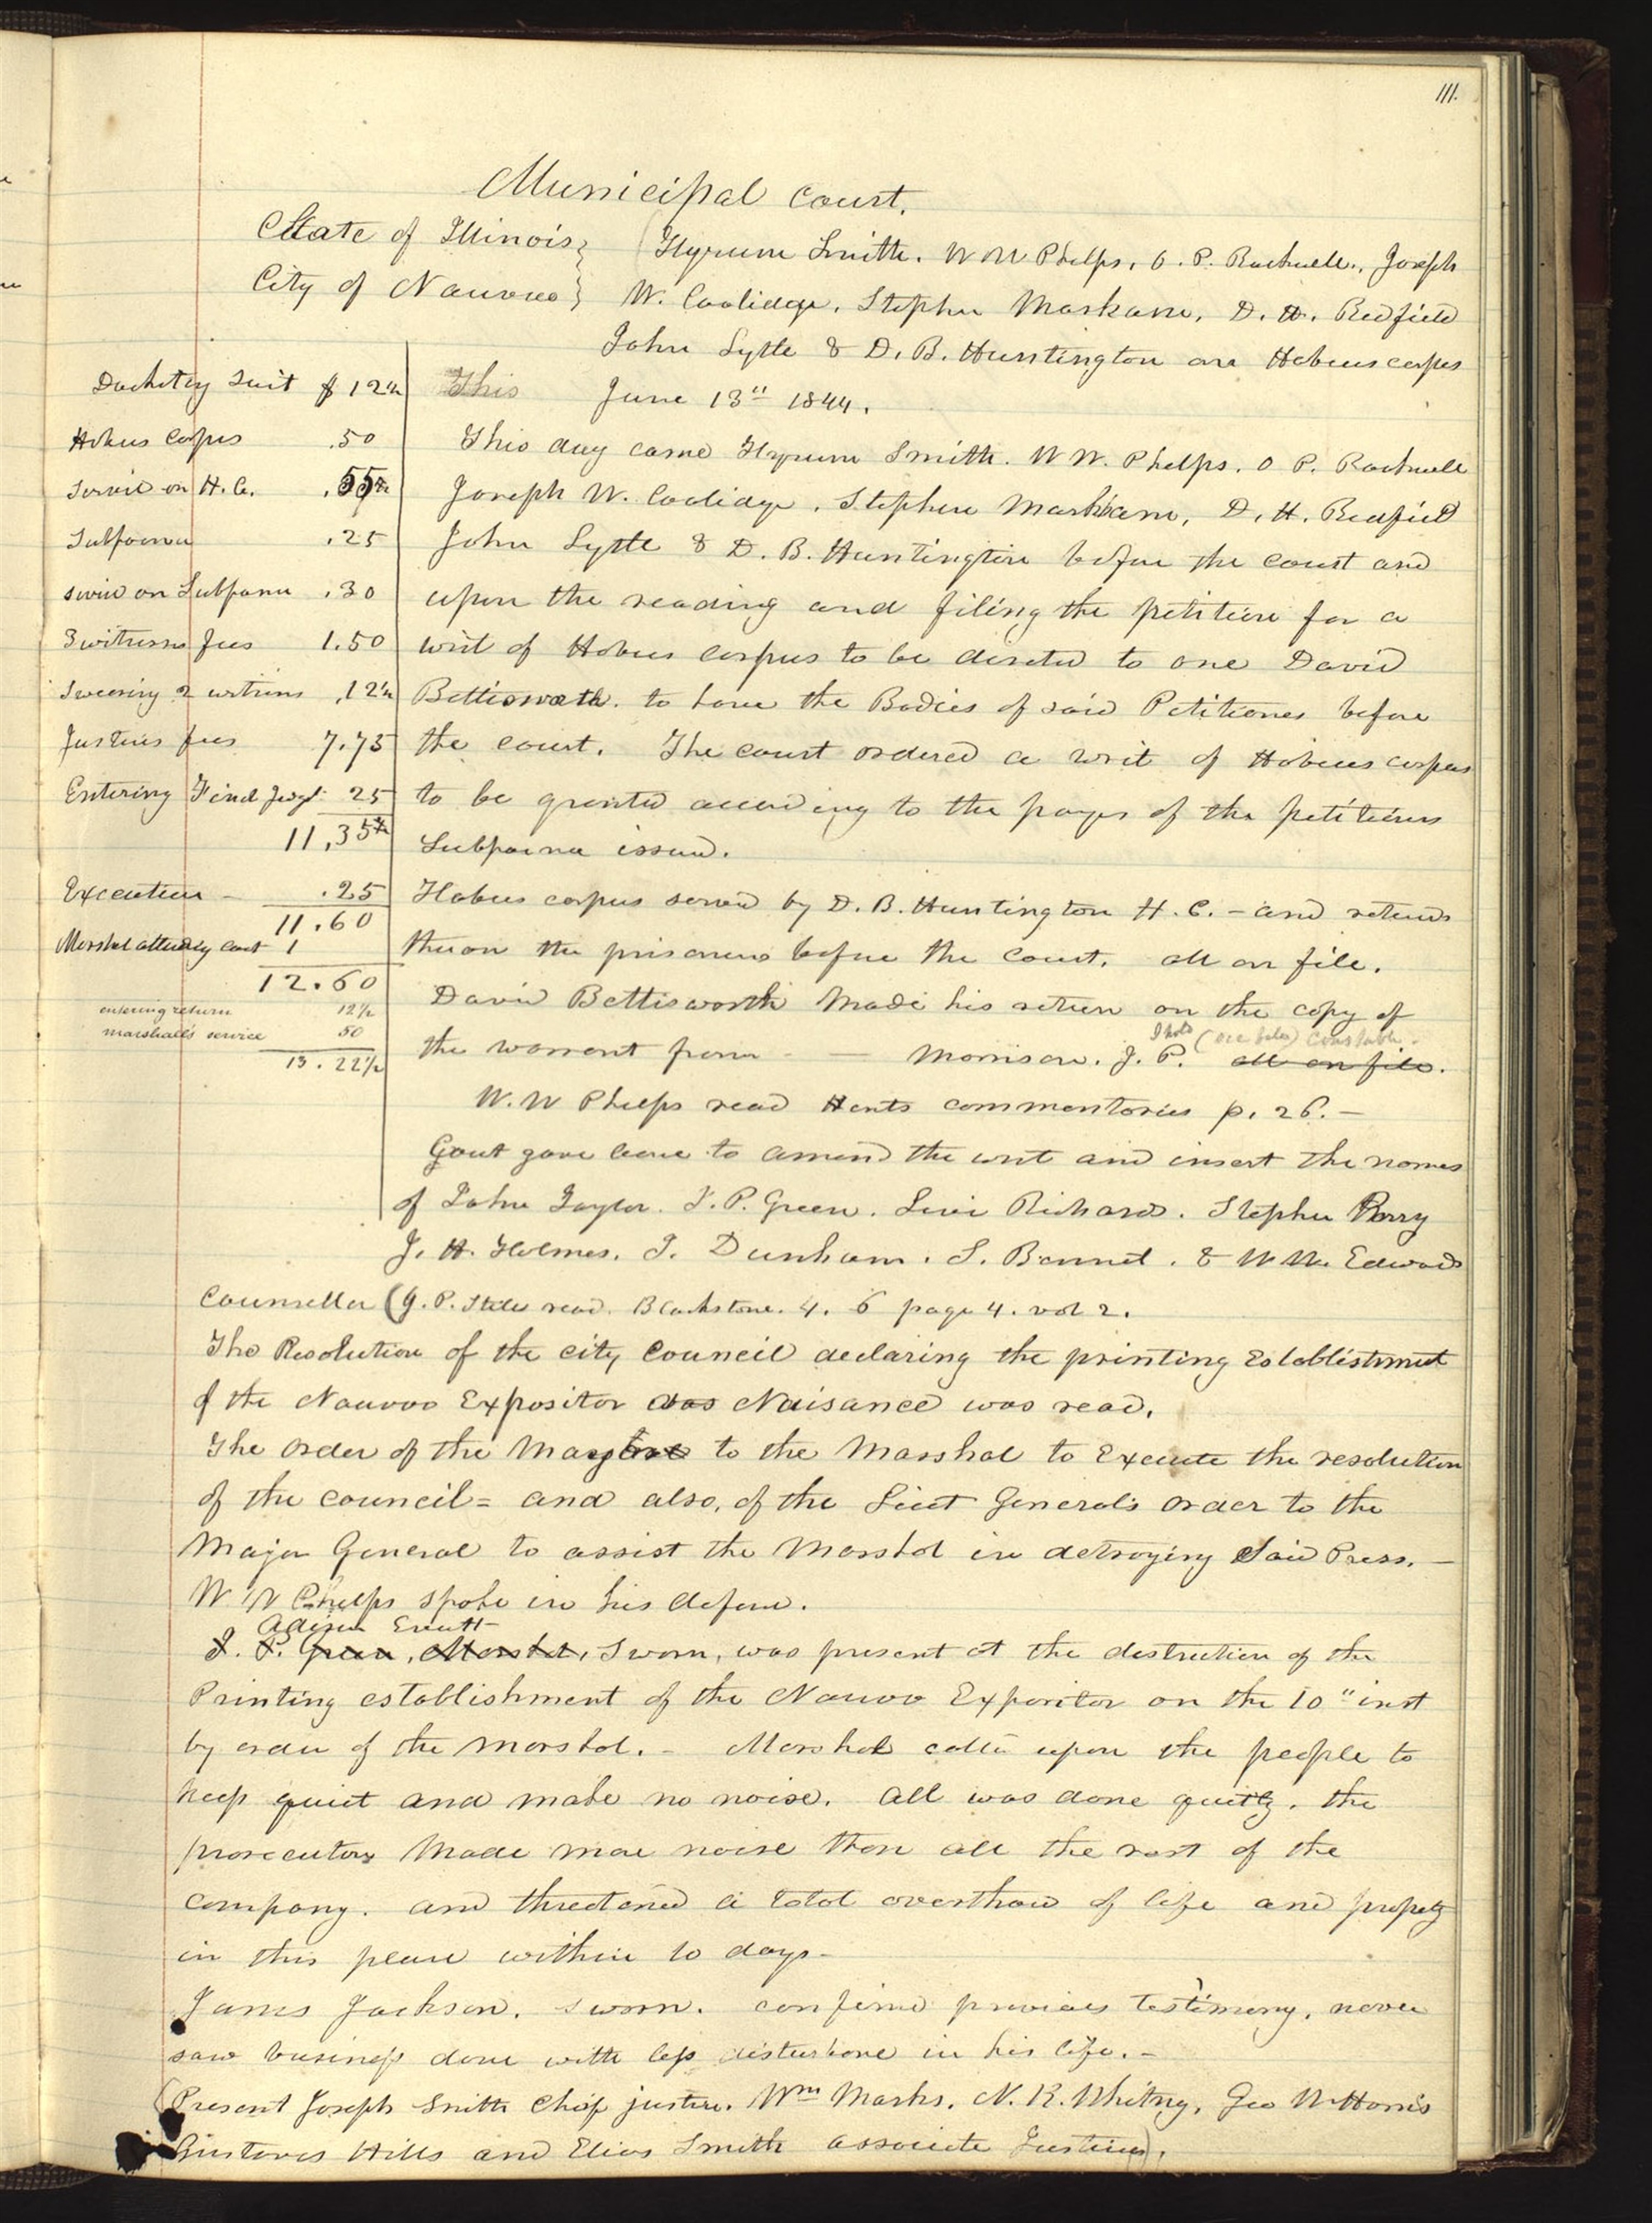 111.
Municipal Court.
State of Illinois } Hyrum Smith. W W Phelps, O. P. Rockwell., Joseph
City of Nauvoo } W. Coolidge. Stephen Markam, D. H. Redfield
John Lytle & D. B. Huntington on Habeus corpus
This June 13" 1844.
Docketing suit $ 12½
Habus Corpus .50
Service on H. C.
Subpoena .25
servic on Subpoena .30
3 witness fees 1.50
Swearing 2 witness .12½
Justices fees 7.75
Entering Final Judgt. 25
11,35
Execution - .25
11.60
Marshal attendg Court 1
12.60
entering return 12½
marshall's service 50
13.22½
This day came Hyrum Smith. W W. Phelps. O P. Rockwell
Joseph W. Coolidge. Stephen Markham, D. H. Redfield
John Lytle & D. B. Huntington before the court and
upon the reading and filing the petition for a
writ of Habeus corpus to be directed to one David
Bettisworth. to have the Bodies of said Petitioners before
the court. The court ordered a writ of Habeus corpus
to be granted according to the prayer of the petitioners
Subpoena issued.
Habeus corpus served by D. B. Huntington H. C. - and returns
theron the prisoners before the Court. all on file.
David Bettisworth Made his return on the copy of
(see files) constable -
the warrant from - - Morrison. J. P. all on file.
W. W Phelps read Kents commentories p. 26. -
Court gave leave to amend the writ and insert the names
of John Taylor. J. P. Green. Levi Richards. Stephen Perry
J. H. Holmes. J. Dunham. S. Bennet. & W W. Edwards
Counsellor (G. P. Stiles read. Blackstone. 4. 6 page 4. vol 2.
The Resolution of the city Council declaring the printing Establishment
of the Nauvoo Expositor was Nuisance was read.
The order of the Mayor to the Marshal to Execute the resolution
of the council = and also, of the Lieut General's order to the
Major General to assist the Marshal in detroying Said Press. -
W W Phelps spoke in his defence.
Adison Everett
J. P. Green, Marshal, Sworn, was present at the destruction of the
Printing establishment of the Nauvoo Expositor on the 10" inst
by order of the Marshal. - Marshal calld upon the people to
keep quiet and make no noise. all was done quietly. the
prosecutors Made more noise than all the rest of the
company. and threatened a total overthrow of life and property
in this place within 10 days -
James Jackson. sworn. confirmd previous testimony, never
saw business done with less disturbance in his life. -
(Present Joseph Smith Chief justice. Wm Marks. N. K. Whitny, Geo W Harris
Gustavus Hills and Elias Smith associate Justices).